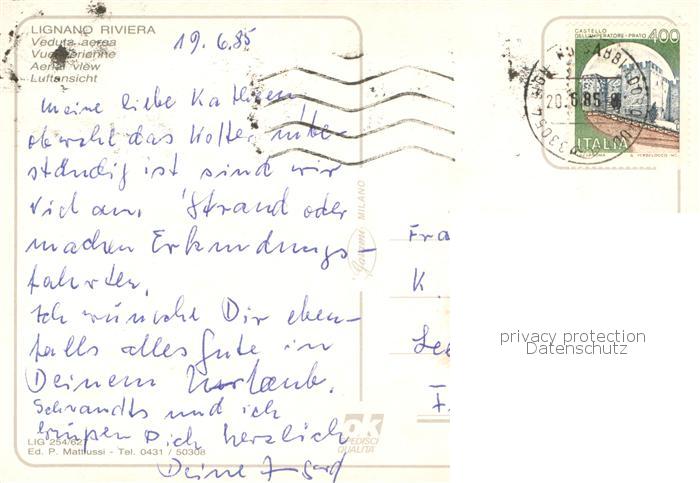 LIGNANO RIVIERA
Veduta aerea
Vue aérienne
Aerial view
Luftansicht
19.6.85
Meine liebe
obwohl das Wetter unbe-
ständig ist sind wir
viel am Strand oder
machen Erkundungs-
fahrten.
Ich wünsche Dir eben-
falls alles Gute in
Deinem Urlaub.
und ich
grüßen Dich herzlich
Deine
LIG 254/62
Ed. P. Mattiussi - Tel. 0431 / 50308
MILANO
ok
SPEDISCI
QUALITÀ
Fra
K.
CASTELLO
DELL'IMPERATORE-PRATO
400
ITALIA
20.6.85
privacy protection
Datenschutz